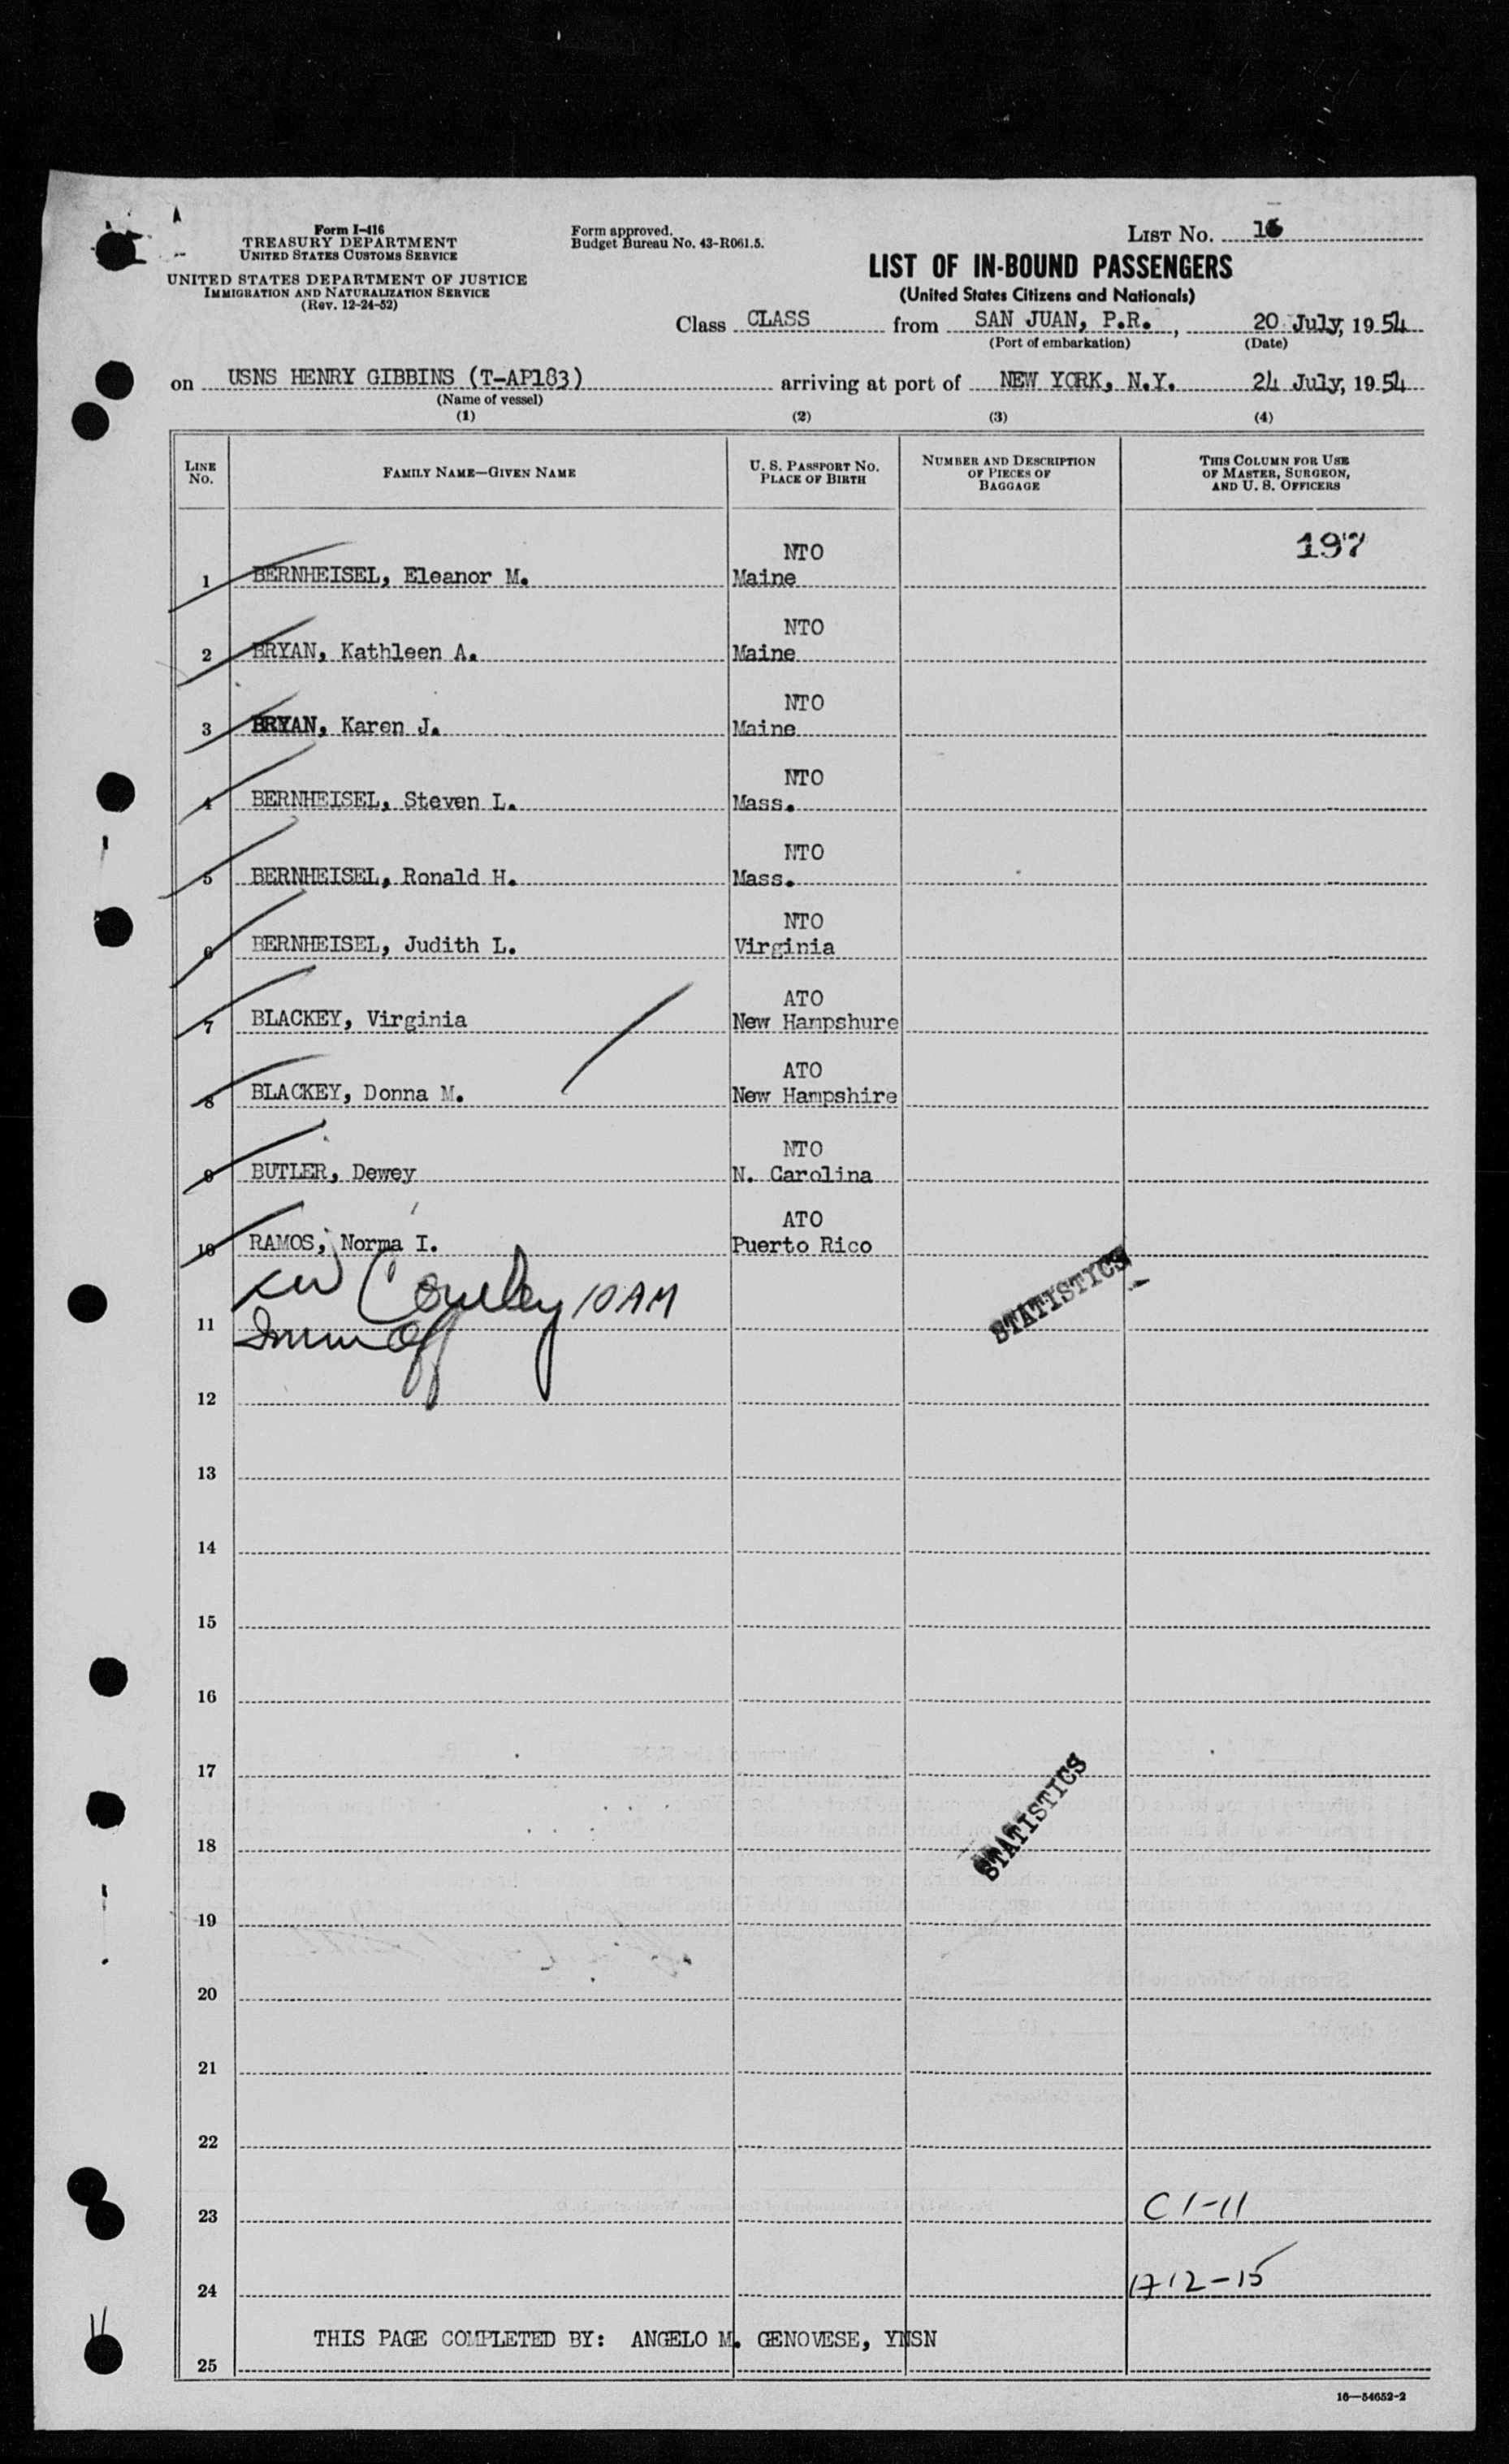 Form I-416
TREASURY DEPARTMENT
UNITED STATES CUSTOMS SERVICE
UNITED STATES DEPARTMENT OF JUSTICE
IMMIGRATION AND NATURALIZATION SERVICE
(Rev. 12-24-52)
Form approved.
Budget Bureau No. 43-R061.5.
LIST No. 16
LIST OF IN-BOUND PASSENGERS
(United States Citizens and Nationals)
Class CLASS from SAN JUAN, P.R., 20 July, 1954
(Port of embarkation) (Date)
on USNS HENRY GIBBINS (T-AP183) arriving at port of NEW YORK, N.Y. 24 July, 1954
(Name of vessel)
(1) (2) (3) (4)
LINE No. FAMILY NAME—GIVEN NAME U. S. PASSPORT NO. PLACE OF BIRTH NUMBER AND DESCRIPTION OF PIECES OF BAGGAGE THIS COLUMN FOR USE OF MASTER, SURGEON, AND U. S. OFFICERS
NTO 197
1 BERNHEISEL, Eleanor M. Maine
NTO
2 BRYAN, Kathleen A. Maine
NTO
3 BRYAN, Karen J. Maine
NTO
4 BERNHEISEL, Steven L. Mass.
NTO
5 BERNHEISEL, Ronald H. Mass.
NTO
6 BERNHEISEL, Judith L. Virginia
ATO
7 BLACKEY, Virginia New Hampshure
ATO
8 BLACKEY, Donna M. New Hampshire
NTO
9 BUTLER, Dewey N. Carolina
ATO
10 RAMOS, Norma I. Puerto Rico
10 AM
STATISTICS
11 Imm Off
12
13
14
15
16
17
STATISTICS
18
19
20
21
22
23 C 1-11
24 12-15
THIS PAGE COMPLETED BY: ANGELO M. GENOVESE, YNSN
25
16—54652-2